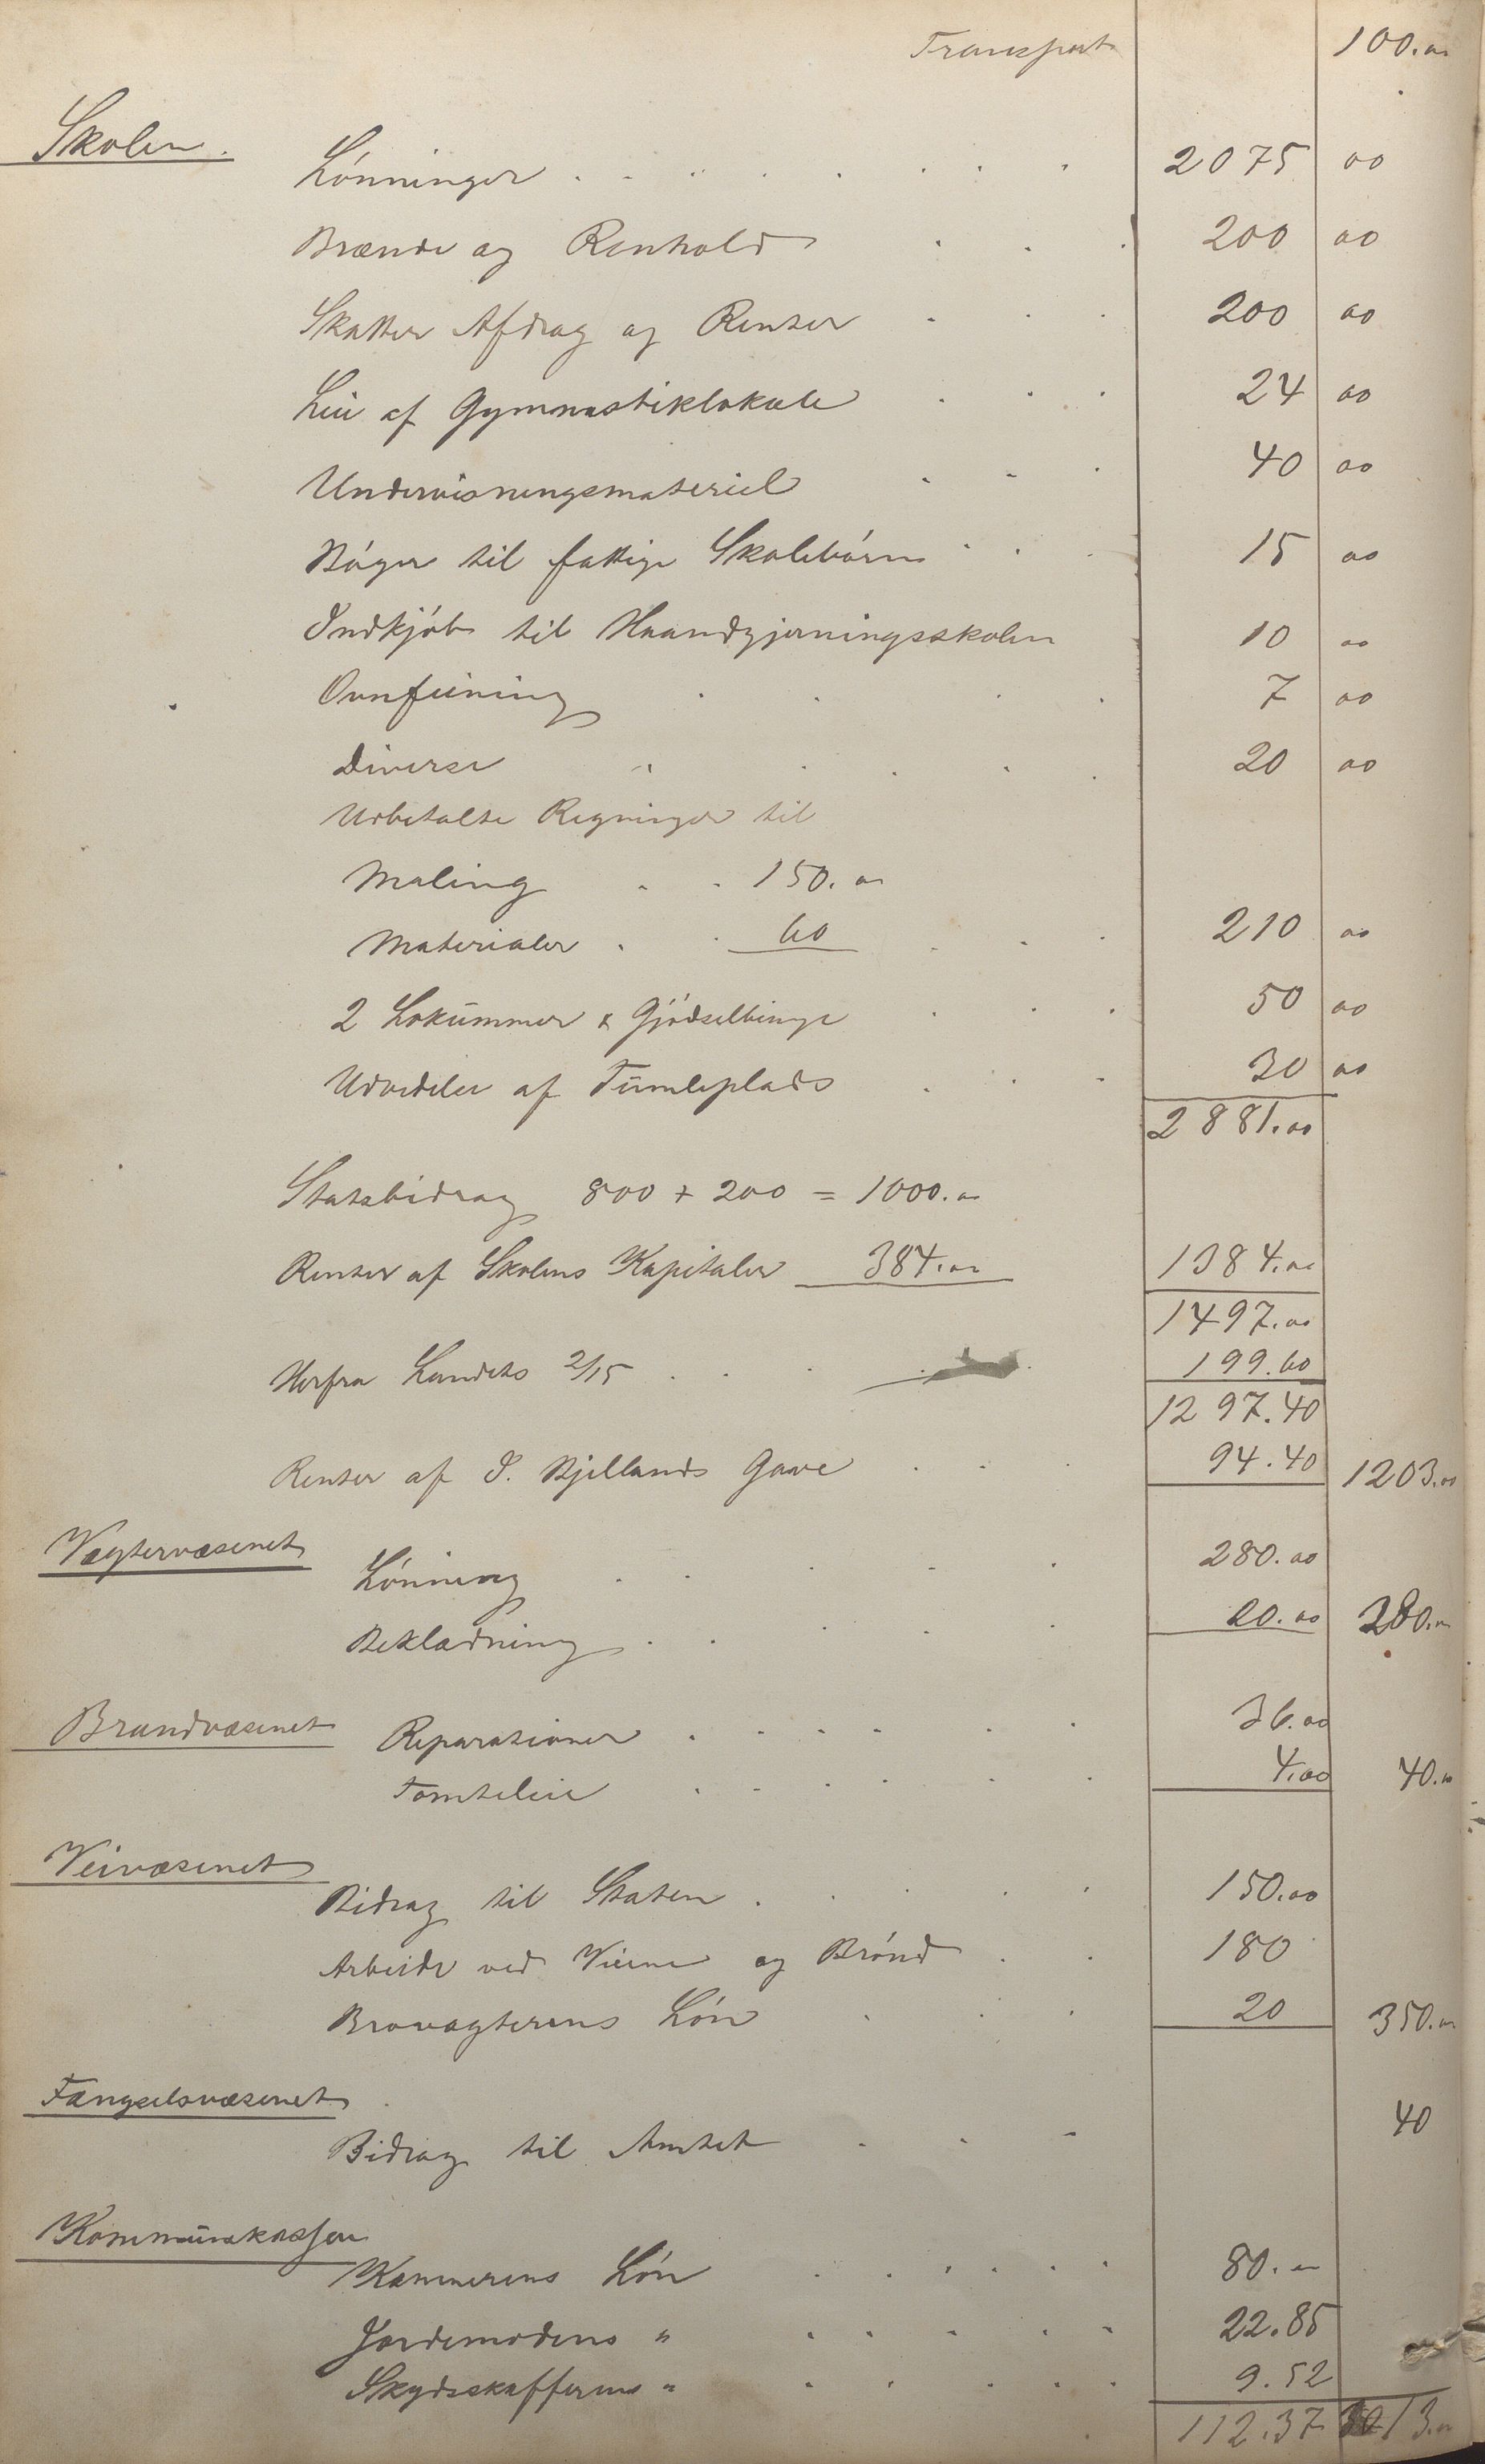 Transport 100.00
Skolen.
Lønninger 2075 00
Brænde og Renhold 200 00
Skatter Afdrag og Renter 200 00
Leie af Gymnastiklokale 24 00
Undervisningsmateriel 40 00
Bøger til fattige Skolebørn 15 00
Indkjøb til Haandgjerningsskolen 10 00
Ovnfeining 7 00
Diverse 20 00
Ubetalte Regninger til
Maling 150.00
Materialer 60 210 00
2 Lokummer & Gjødselbinge 50 00
Udvidelse af Tumleplads 30 00
2881.00
Statsbidrag 800 + 200 = 1000.00
Renter af Skolens Kapitaler 384.00 1384.00
1497.00
Herfra Landets 2/15 199.60
1297.40
Renter af I. Kjellands Gave 94.40 1203.00
Vægtervæsenet
Lønning 280.00
Beklædning 20.00
Brandvæsenet Reparationer 36.00
Tomteleie 4.00 40.00
Veivæsenet
Bidrag til Staten 150.00
Arbeide ved Veiene og Brønd 180
Brovagterens Løn 20 350.00
Fængselsvæsenet 40
Bidrag til Amtet
Kommunekassen
Kæmnerens Løn 80.00
Jordemodens " 22.85
Skydsskafferens " 9.52
112.37